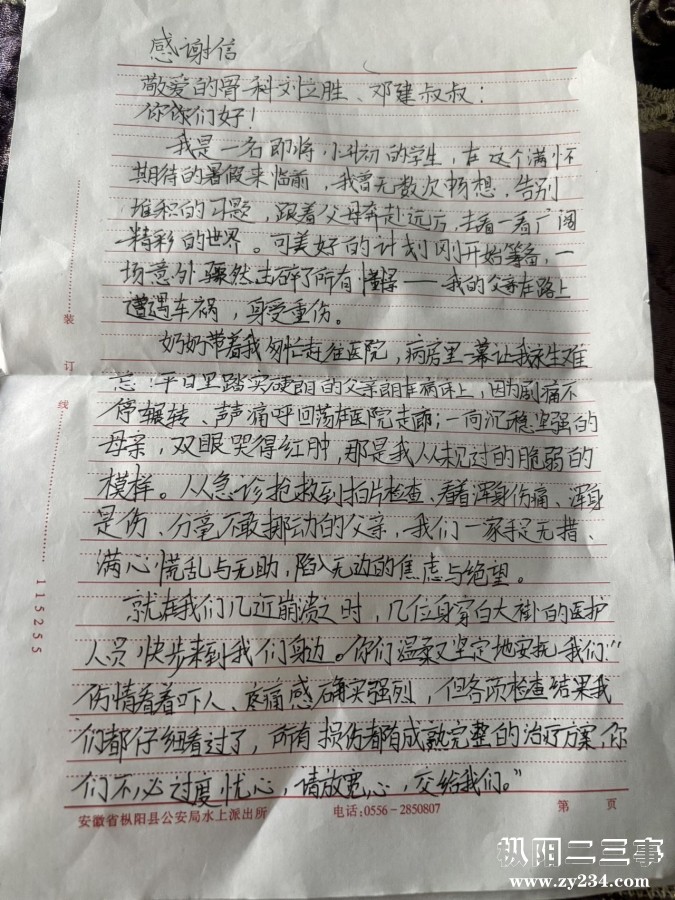 感谢信
敬爱的骨科刘立胜、邓建叔叔：
你们好！
我是一名即将小升初的学生，在这个满怀
期待的暑假来临前，我曾无数次畅想，告别
堆积的习题，跟着父母奔赴远方，去看一看广阔
精彩的世界。可美好的计划刚开始筹备，一
场意外骤然击碎了所有憧憬——我的父亲在路上
遭遇车祸，身受重伤。
奶奶带着我匆忙赶往医院，病房里一幕让我永生难
忘！平日里踏实硬朗的父亲躺在病床上，因为剧痛不
停辗转、声声痛呼回荡在医院走廊；一向沉稳坚强的
母亲，双眼哭得红肿，那是我从未见过的脆弱的
模样。从急诊抢救到拍片检查、看着浑身伤痛、浑身
是伤、分毫不敢挪动的父亲，我们一家手足无措、
满心慌乱与无助，陷入无边的焦虑与绝望。
就在我们几近崩溃之时，几位身穿白大褂的医护
人员快步来到我们身边。你们温柔又坚定地安抚我们："
伤情看着吓人、疼痛感确实强烈，但各项检查结果我
们都仔细看过了，所有损伤都有成熟完整的治疗方案，你
们不必过度忧心，请放宽心，交给我们。"
装订线
115255
安徽省枞阳县公安局水上派出所 电话：0556－2850807 第 页
枞阳二三事
www.zy234.com